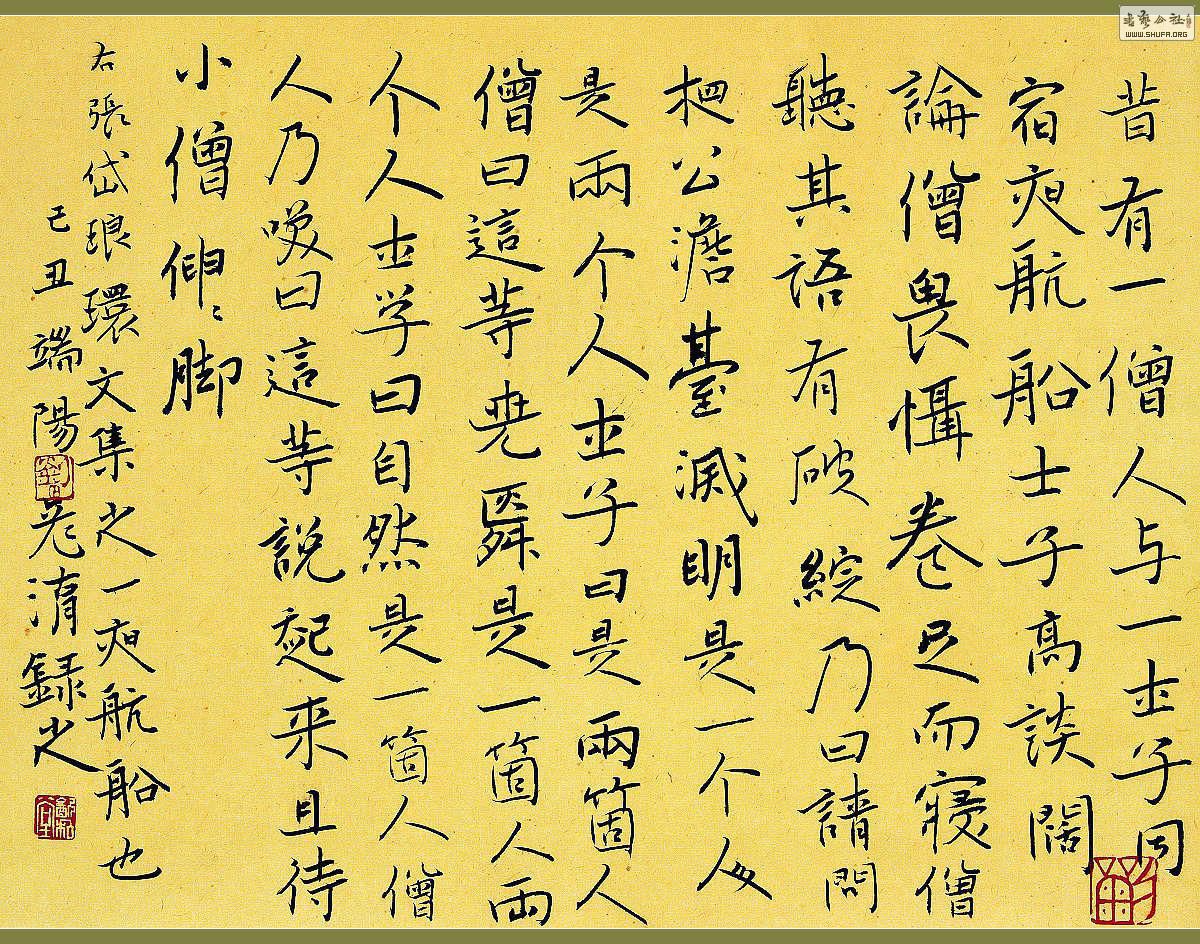 昔有一僧人与一士子同
宿夜航船士子高談闊
論僧畏懾卷足而寢僧
聽其語有破綻乃曰請問
相公澹臺滅明是一个人
是兩个人士子曰是兩箇人
僧曰這等堯舜是一箇人兩
个人士学曰自然是一箇人僧
人乃笑曰這等説起来且待
小僧伸〻脚
右張岱琅環文集之一夜航船也
己丑端陽老淯録之
书艺公社
WWW.SHUFA.ORG